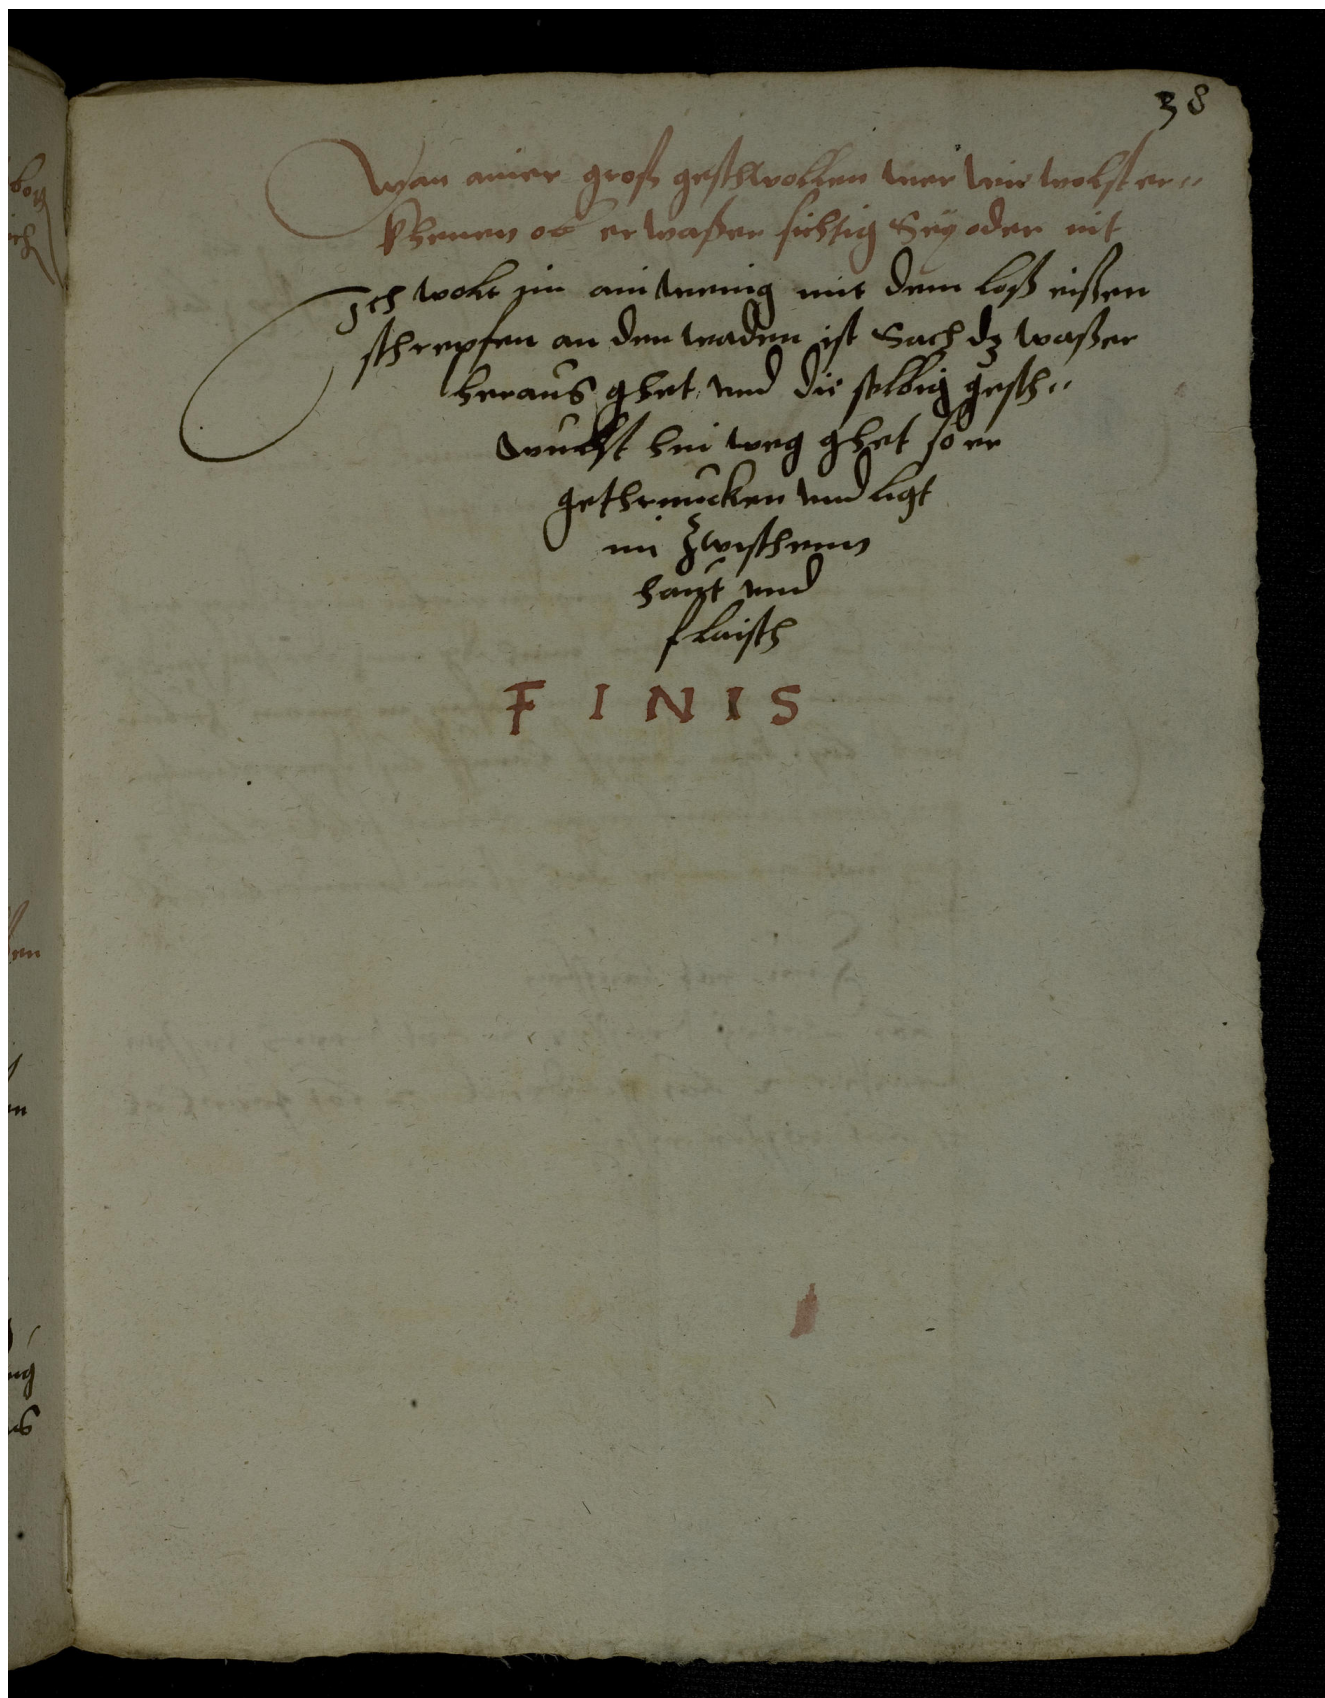 38
Wan ainer groß geschwollen wer wie wolst er„
khenen ob er waßer sichtig Seÿ oder nit
Ich wolt im ain wenig mit dem laß eißen
schrepfen an den waden ist Sach dz waßer
heraus ghet und die selbig gesch„
wulst hin weg ghet so er
gethruncken und ligt
im zwischenn
haut und
flaisch
F I N I S